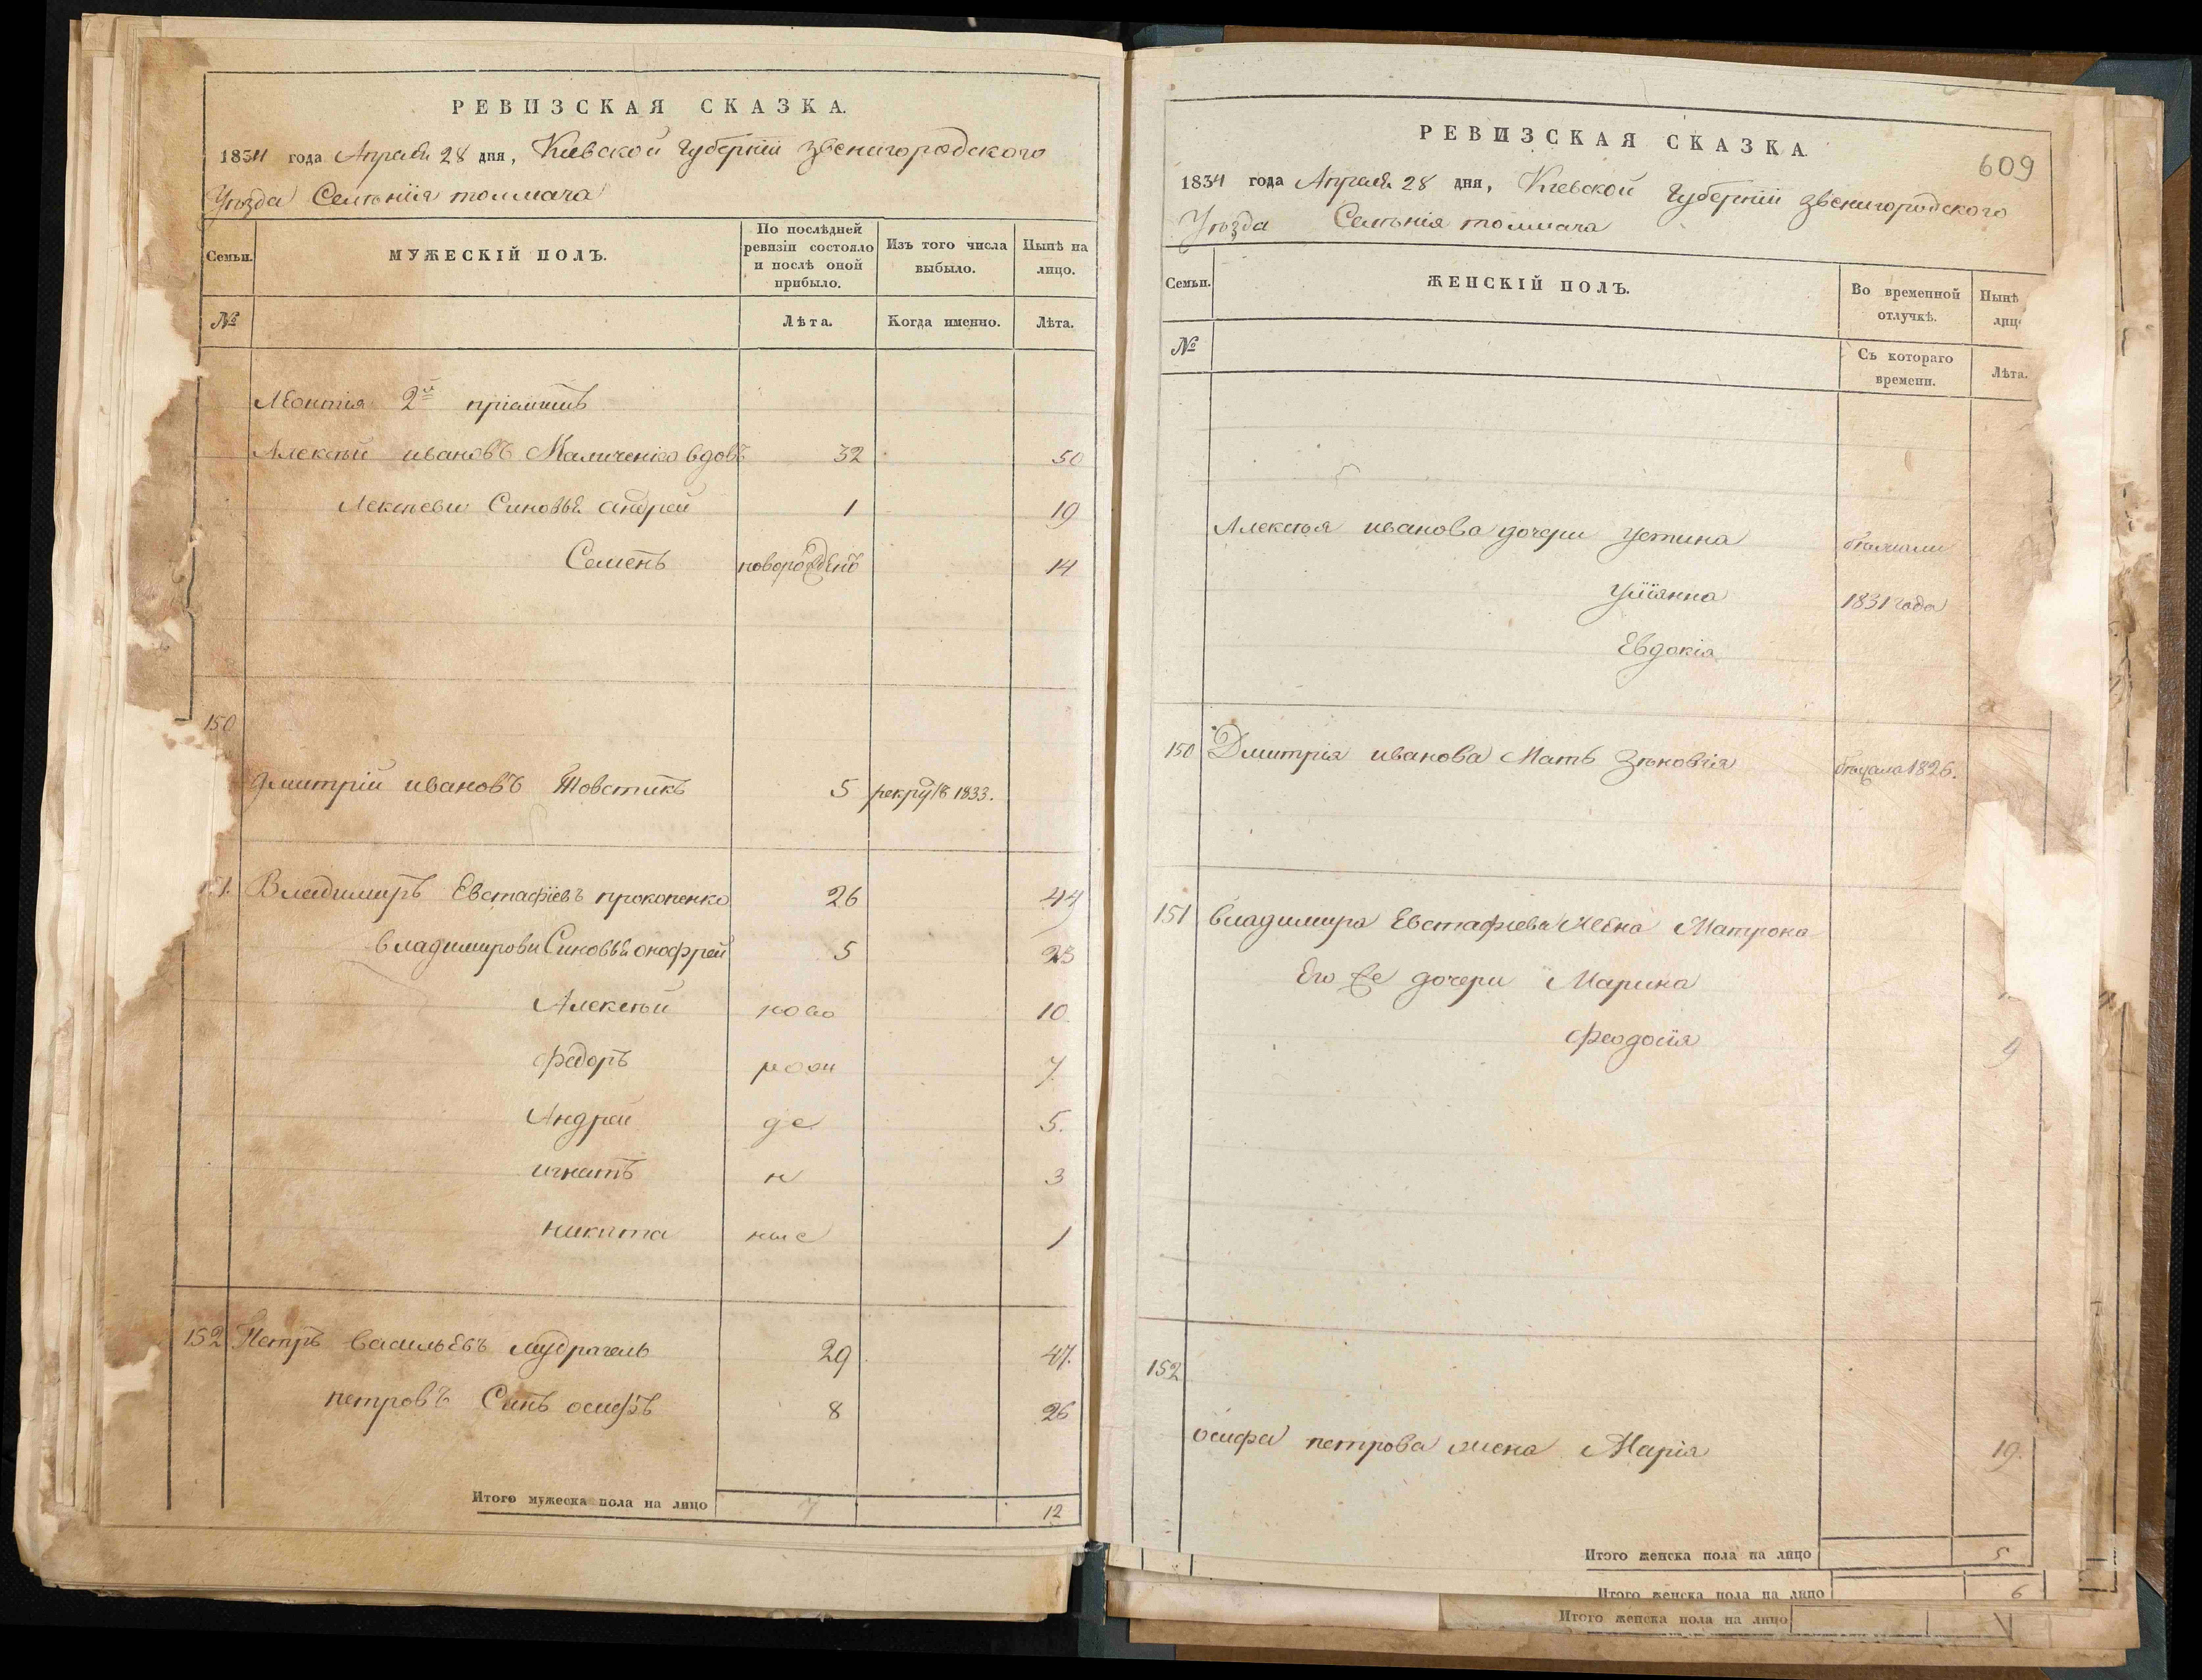 РЕВИЗСКАЯ СКАЗКА.
1834 года Апреля 28 дня, Киевской Губернiи Звенигородского
Уѣзда Селѣнiя толмача
Семьи. МУЖЕСКIЙ ПОЛЪ. По послѣдней ревизiи состояло и послѣ оной прибыло. Изъ того числа выбыло. Нынѣ на лицо.
№ Лѣта. Когда именно. Лѣта.
Леонтiя 2й прiемишъ
Алексѣй ивановъ Маличенко вдовъ 32 50
Лексѣеви Синовья андрей 1 19
Семенъ новорожденъ 14
150
Дмитрiй ивановъ Товстикъ 5 рекру 1833.
151. Владимиръ Евстафiевъ прокопенко 26 44
владимирови Синовья онофрей 5 23
Алексѣй ново 10.
Федоръ рож 7.
Андрей де 5.
игнатъ н 3
никита ние 1
152 Петръ васильевъ мудрагель 29 47.
петровъ Синъ осифъ 8 26
Итого мужеска пола на лицо 7 12
РЕВИЗСКАЯ СКАЗКА
609
1834 года Апреля 28 дня, Киевской Губернiи звенигородского
Уѣзда Селѣнiя толмача
Семьи. ЖЕНСКIЙ ПОЛЪ. Во временной отлучкѣ. Нынѣ лиц
№ Съ котораго времени. Лѣта.
Алексѣя иванова дочери Устина бѣжали
Улiянна 1831 года
Евдокiя
150 Дмитрiя иванова Мать Зѣновiя бѣжала 1826.
151 владимира Евстафiева жена Матрона
Его же дочери Марина
Феодосiя 4
152
осифа петрова жена Марiя 19.
Итого женска пола на лицо 5
Итого женска пола на лицо 6
Итого женска пола на лицо